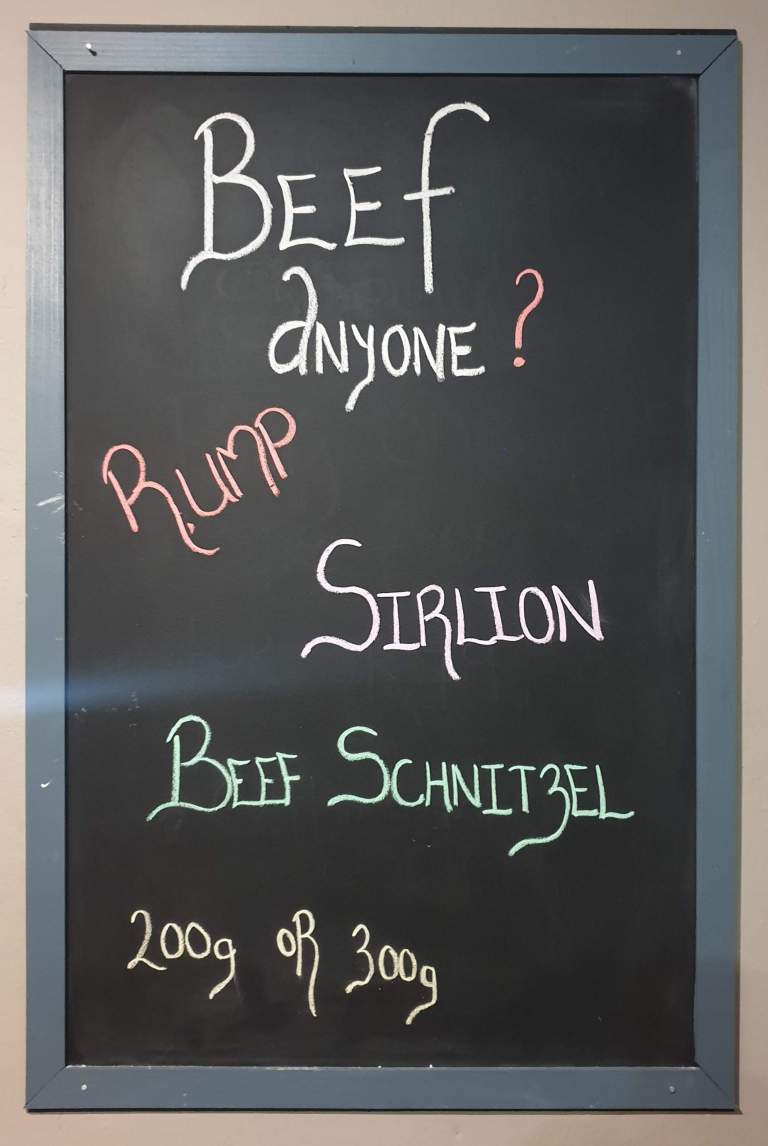 BEEf
anyone ?
RUMP
SIRLION
BEEF SCHNITZEL
200g OR 300g